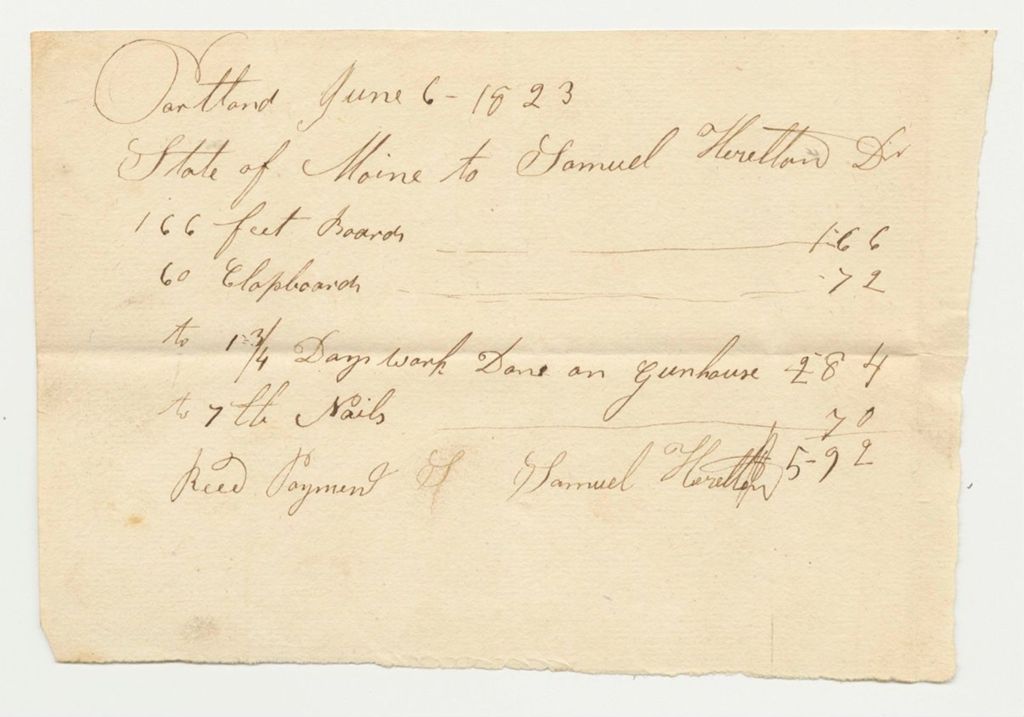 Portland June 6 - 1823
State of Maine to Samuel Dr
166 feet Boards 1-66
60 Clapboards -72
to 1-3/4 Days work Done on Gunhouse 2-84
to 7 lb Nails 70
5-92
Recd Payment Samuel